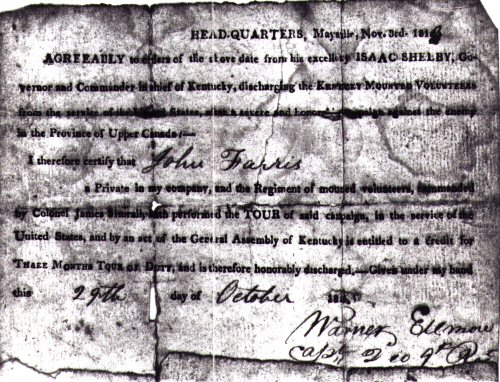 HEAD-QUARTERS, Maysville, Nov. 3rd. 181
AGREEABLY to orders of the above date from his excellency ISAAC SHELBY, Go-
vernor and Commander in chief of Kentucky, discharging the KENTUCKY MOUNTED VOLUNTEERS
from the service of the United States, after a severe and campaign against the enemy
in the Province of Upper Canada:—
I therefore certify that John Farris
a Private in my company, and the Regiment of mounted volunteers, commanded
by Colonel James hath performed the TOUR of said campaign, in the service of the
United States, and by an act of the General Assembly of Kentucky is entitled to a credit for
THREE MONTHS TOUR OF DUTY, and is therefore honorably discharged,—Given under my hand
this 29th day of October 181
Warner
Capn